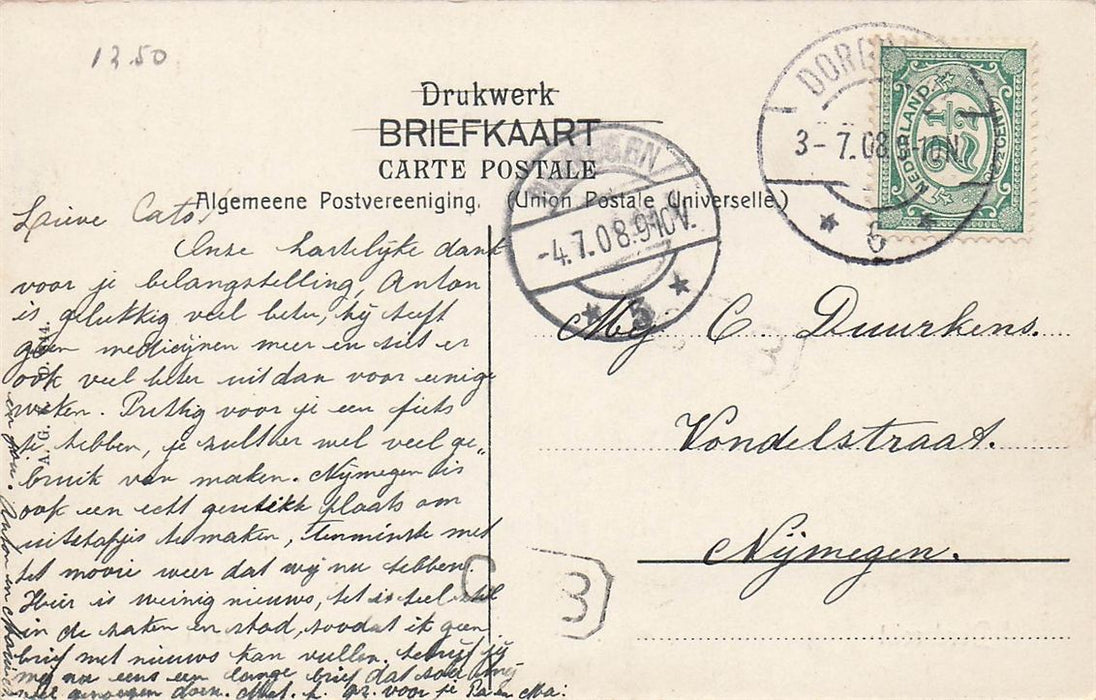 13.50
Drukwerk
BRIEFKAART
CARTE POSTALE
Algemeene Postvereeniging. (Union Postale Universelle.)
DORD
3-7.08 -10N
6
NEDERLAND
2½
2½ CENT
-4.7.08.9-10V.
5
Lieve Cato!
Onze hartelijke dank
voor je belangstelling, Anton
is gelukkig veel beter, hij heeft
geen medicijnen meer en ziet er
ook veel beter uit dan voor eenige
weken. Prettig voor je een fiets
te hebben, je zult er wel veel ge„
bruik van maken. Nijmegen is
ook een echt geschikte plaats om
uitstapjes te maken, tenminste met
het mooie weer dat wij nu hebben.
Hier is weinig nieuws, het is heel stil
in de zaken en stad, zoodat ik geen
brief met nieuws kan vullen, schrijf jij
mij nu eens een lange brief dat zou mij
veel genoegen doen. Met h. gr. voor je Pa en Ma.
en jou. Anton en Marie
A. G.
Mej C. Duurkens.
Vondelstraat.
Nijmegen.
C
3
3